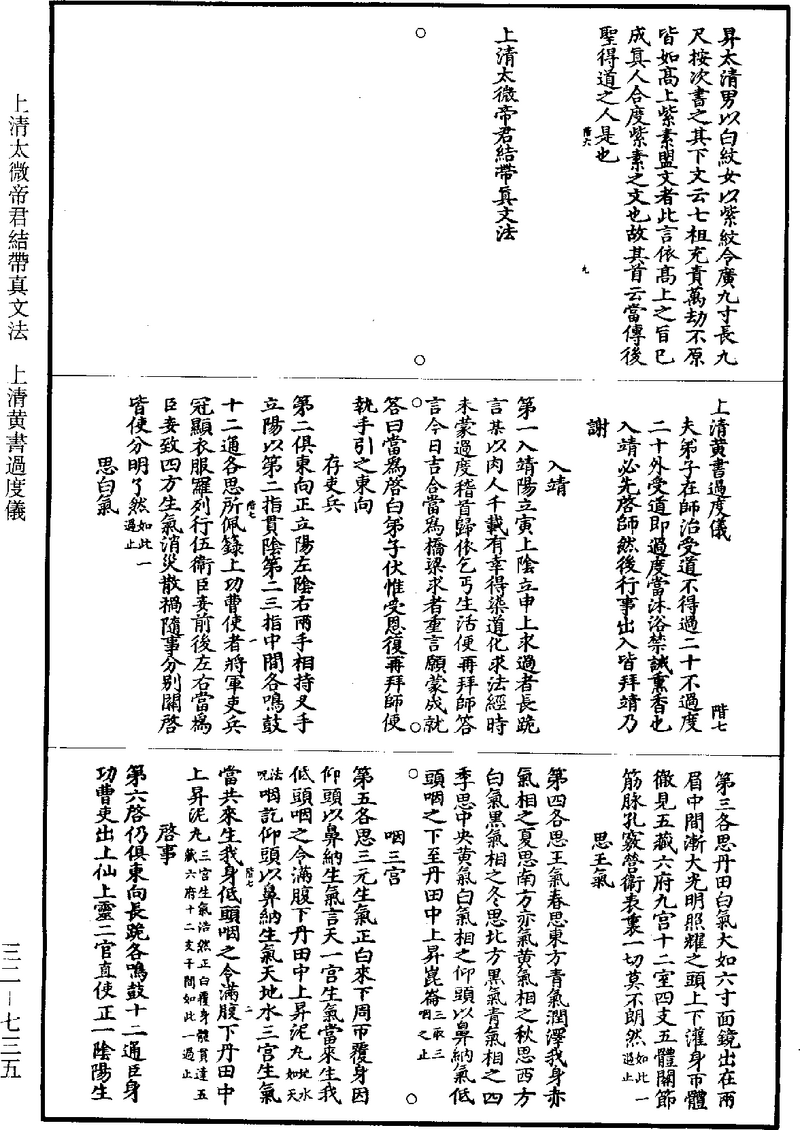 昇太清男以白紋女以紫紋令廣九寸長九
尺按次書之其下文云七祖充責萬劫不原
皆如高上紫素盟文者此言依高上之旨已
成真人合度紫素之文也故其首云當傳後
聖得道之人是也
階六
九
上清太微帝君結帶真文法
上清黃書過度儀
階七
夫弟子在師治受道不得過二十不過度
二十外受道即過度當沐浴禁誡熏香也
入靖必先啓師然後行事出入皆拜靖乃
謝
入靖
第一入靖陽立寅上陰立申上求過者長跪
言某以肉人千載有幸得染道化求法經時
未蒙過度稽首歸依乞丐生活便再拜師答
言今日吉合當為橋梁求者重言願蒙成就
答曰當為啓白弟子伏惟受恩復再拜師便
執手引之東向
存吏兵
第二俱東向正立陽左陰右兩手相持叉手
立陽以第二指貫陰第二三指中間各鳴鼓
階七
一
十二通各思所佩籙上功曹使者將軍吏兵
冠顯衣服羅列行伍衛臣妾前後左右當為
臣妾致四方生氣消災散禍隨事分別關啓
皆使分明了然如此一過止
思白氣
第三各思丹田白氣大如六寸面鏡出在兩
眉中間漸大光明照耀之頭上下灌身帀體
徹見五藏六府九宮十二室四支五體關節
筋脉孔竅營衛表裏一切莫不朗然如此一過止
思王氣
第四各思王氣春思東方青氣潤澤我身赤
氣相之夏思南方赤氣黃氣相之秋思西方
白氣黑氣相之冬思北方黑氣青氣相之四
季思中央黃氣白氣相之仰頭以鼻納氣低
頭咽之下至丹田中上昇崑崙三取三咽之止
咽三宮
第五各思三元生氣正白來下周帀覆身因
仰頭以鼻納生氣言天一宮生氣當來生我
低頭咽之令滿腹下丹田中上昇泥丸地水如天
法呪咽訖仰頭以鼻納生氣天地水三宮生氣
階七
二
當共來生我身低頭咽之令滿腹下丹田中
上昇泥丸三宮生氣浩然正白覆身體貫達五藏六府十二支干間如此一過止
啓事
第六啓仍俱東向長跪各鳴鼓十二通臣身
功曹吏出上仙上靈二官直使正一陰陽生
上清太微帝君結帶真文法　上清黃書過度儀
三二－七三五